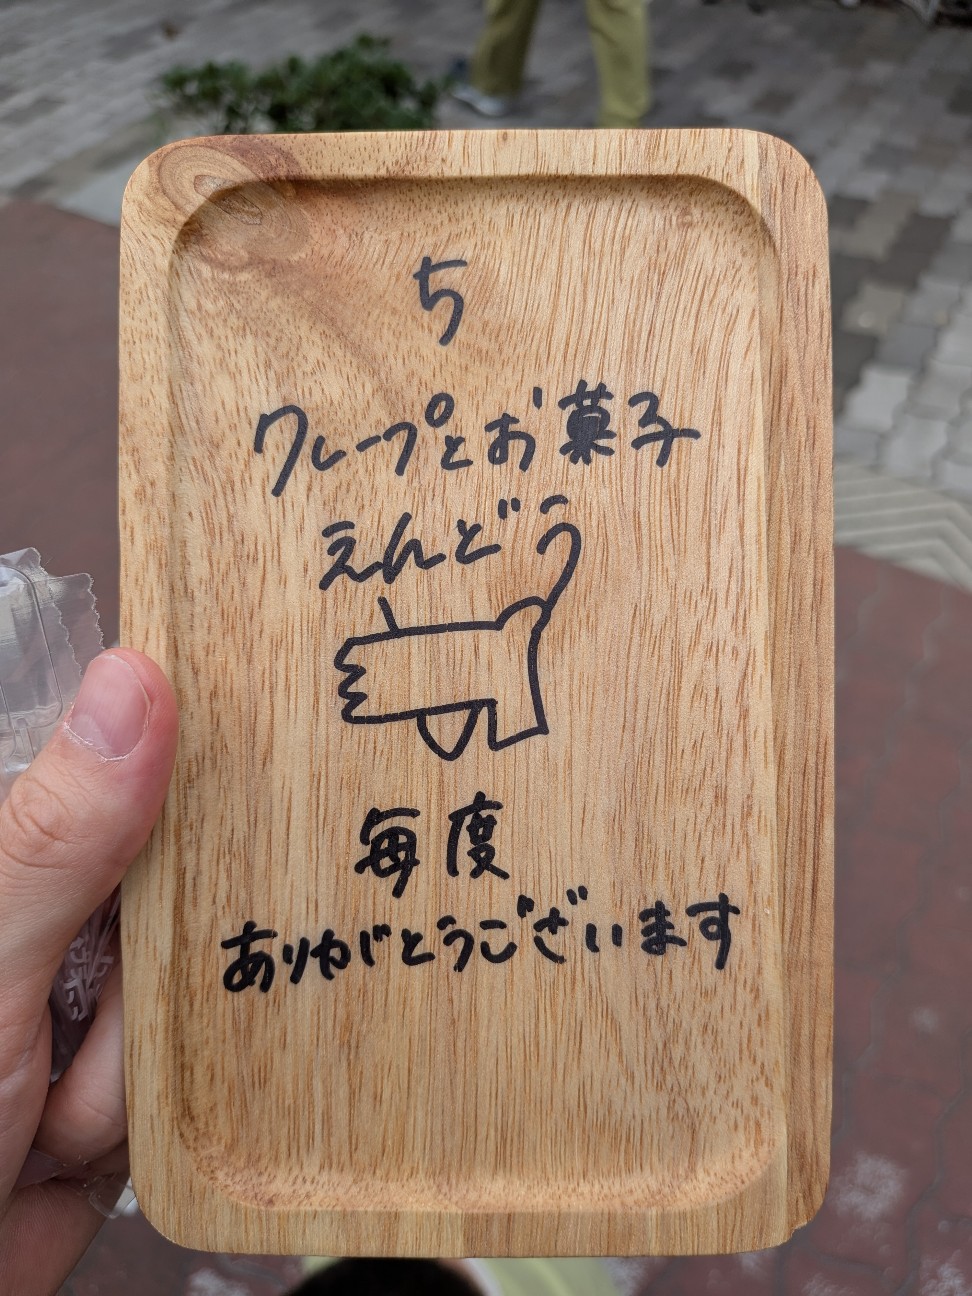 ち
クレープとお菓子
えんどう
毎度
ありがとうございます